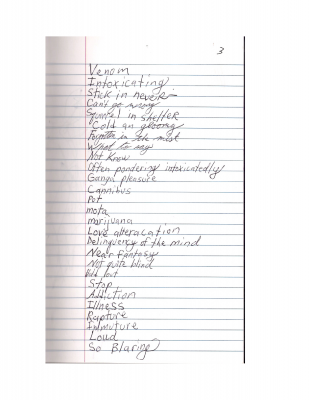 3
Venom
Intoxicating
Stick in never
Can't go wrong
Squeal in shelter
Cold an gloomy
Forgotten in the mist
What to say
Not know
Often pondering intoxicatedly
Ganga pleasure
Cannibus
Pot
mota
marijuana
Love alteracation
Delinquency of the mind
Near Fantasy
Not quite blind
out
Stop
Addiction
Illness
Rapture
Immuture
Loud
So Blaring